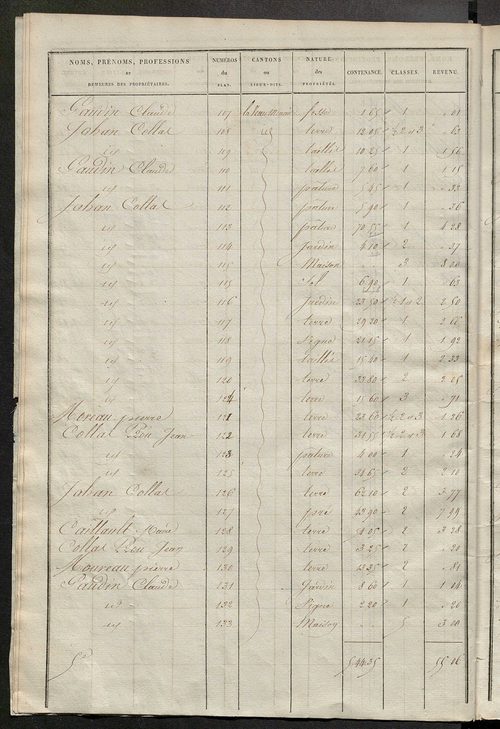 NOMS, PRÉNOMS, PROFESSIONS ET DEMEURES DES PROPRIÉTAIRES. NUMÉROS du PLAN. CANTONS ou LIEUX-DITS. NATURE des PROPRIÉTÉS. CONTENANCE. CLASSES. REVENU.
Gaudin Claude 107 fosse 1 65 1 01
Jahan Collas 108 id terre 12 05 2 et 3 13
id 109 taillis 10 25 1 1 56
Gaudin Claude 110 taillis 7 60 1 1 15
id 111 pature 5 45 1 33
Jahan Collas 112 pature 5 90 1 36
id 113 pature 70 55 1 4 28
id 114 Jardin 4 10 2 37
id 115 Maison 3 8 00
id 115 Sol 6 90 1 63
id 116 Jardin 23 50 1 et 2 2 50
id 117 terre 29 20 1 2 66
id 118 Vigne 21 15 1 1 92
id 119 taillis 15 40 1 2 33
id 120 terre 33 80 2 2 05
id 124 terre 15 60 3 71
Moreau pierre 121 terre 23 60 2 et 3 1 26
Collas Jean 122 terre 31 55 2 et 3 1 68
id 123 pature 4 00 1 24
id 125 terre 34 65 2 2 10
Jahan Collas 126 terre 62 10 2 3 77
id 127 pré 43 90 2 7 49
Caillault 128 terre 54 05 2 3 28
Collas Jean 129 terre 3 25 2 20
Moureau pierre 130 terre 13 35 2 81
Gaudin Claude 131 Jardin 8 60 1 1 14
id 132 Vigne 2 20 1 26
id 133 Maison 5 3 00
5 44 35 55 16